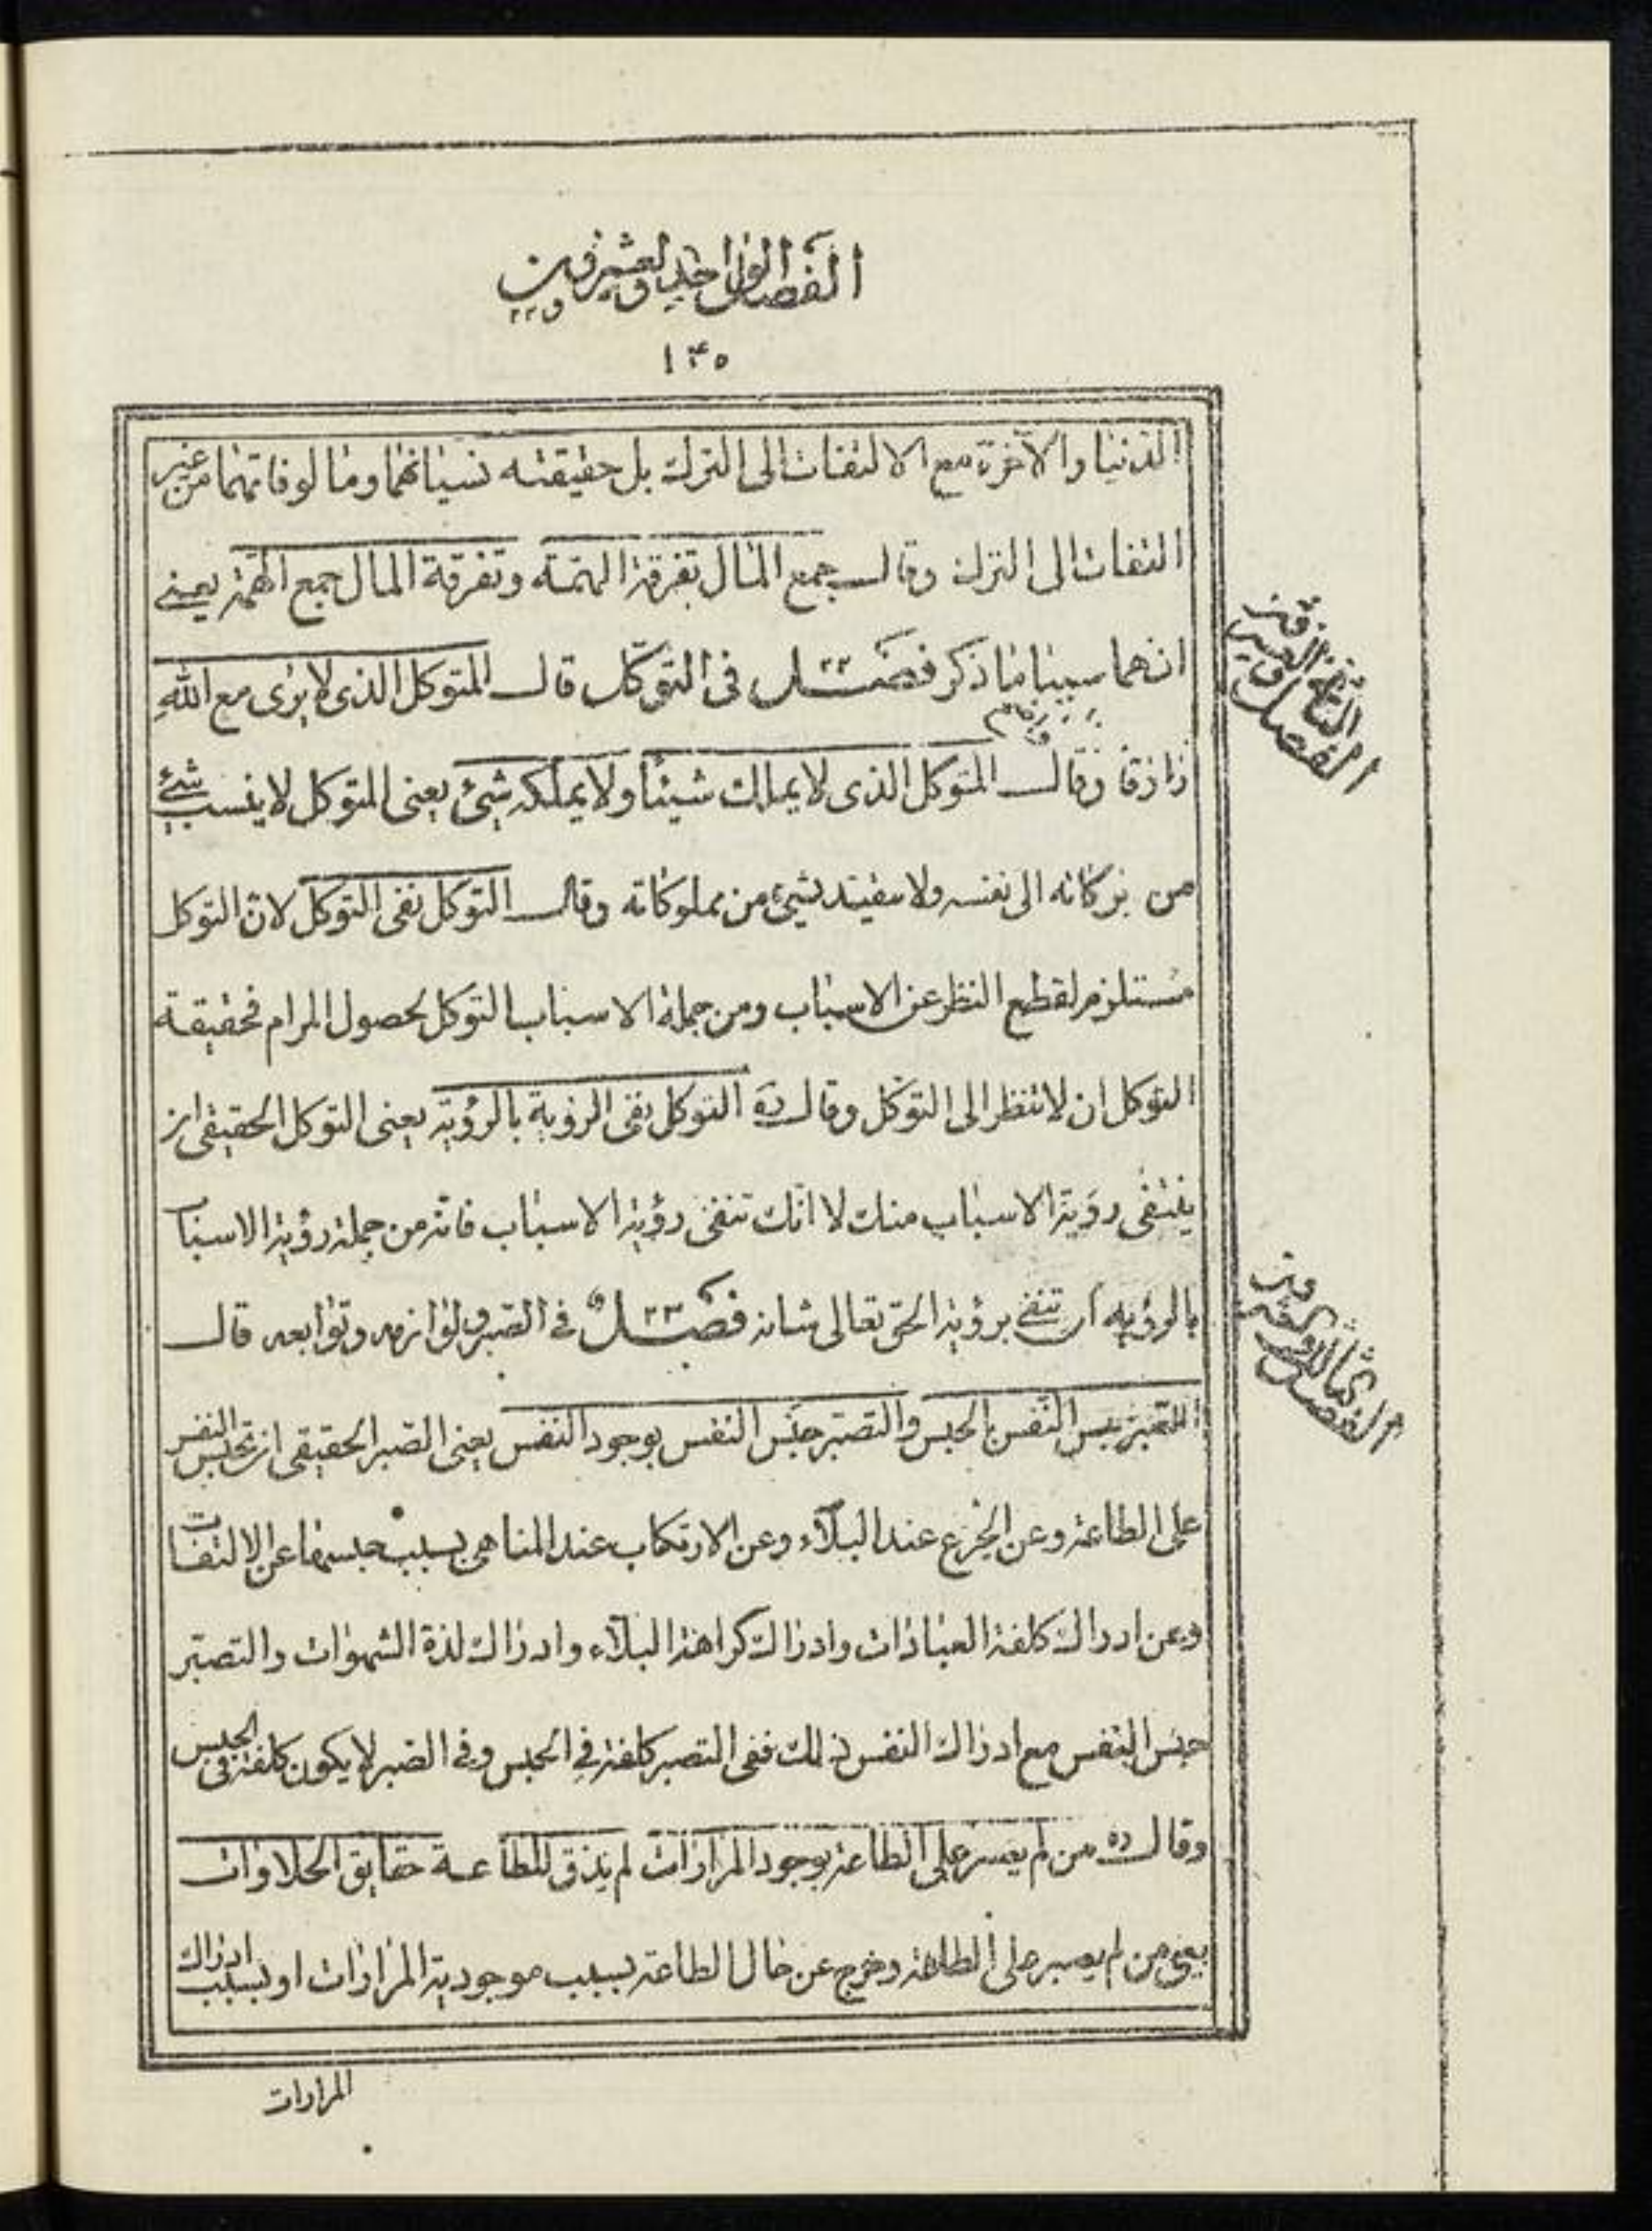 الفصل الواحد والعشرون
١٤٥
الدنيا والآخرة مع الالتفات الى الترك بل حقيقته نسيانهما ومالوفاتهما من غير
التفات الى الترك وقال جمع المال تفرقة الهمّة وتفرقة المال جمع الهمّة يعنى
انهما سببا ما ذكر فصــل ٢٢ فى التوكّل قال المتوكل الذى لا يرى مع الله
رازقا وقال المتوكل الذى لا يملك شيئا ولا يملكه شئ يعنى المتوكل لا ينسب شئ
من الى نفسه ولا بشئ من مملوكاته وقال التوكل نفى التوكل لانّ التوكل
مستلزم لقطع النظر عن الاسباب ومن جملة الاسباب التوكل لحصول المرام فحقيقة
التوكل ان لا تنظر الى التوكّل وقال ره التوكل نفى الرؤية بالرؤية يعنى التوكل الحقيقى ان
ينتفى رؤية الاسباب منك لا انّك تنفى رؤية الاسباب فانّه من جملة رؤية الاسباب
بالرؤية اى تنفى برؤية الحق تعالى شانه فصــل ٢٣ فى الصّبر ولوازمه وتوابعه قال
الصّبر حبس النّفس بالحبس والتصبّر حبس النفس بوجود النفس يعنى الصّبر الحقيقى ان تحبس النفس
على الطاعة وعن الجزع عند البلآء وعن الارتكاب عند المناهى بسبب حبسها عن الالتفات
وعن ادراك كلفة العبادات وادراك كراهة البلآء وادراك لذة الشهوات والتصبّر
حبس النفس مع ادراك النفس ذلك ففى التصبر كلفة فى الحبس وفى الصّبر لا يكون كلفة فى الحبس
وقال ره من لم يصبر على الطاعة بوجود المرارات لم يذق للطاعة حقايق الحلاوات
يعنى من لم يصبر على الطاعة وخرج عن حال الطاعة بسبب موجودية المرارات او بسبب ادراك
المرارات
الفصل الثانى والعشرون
الفصل الثالث والعشرون